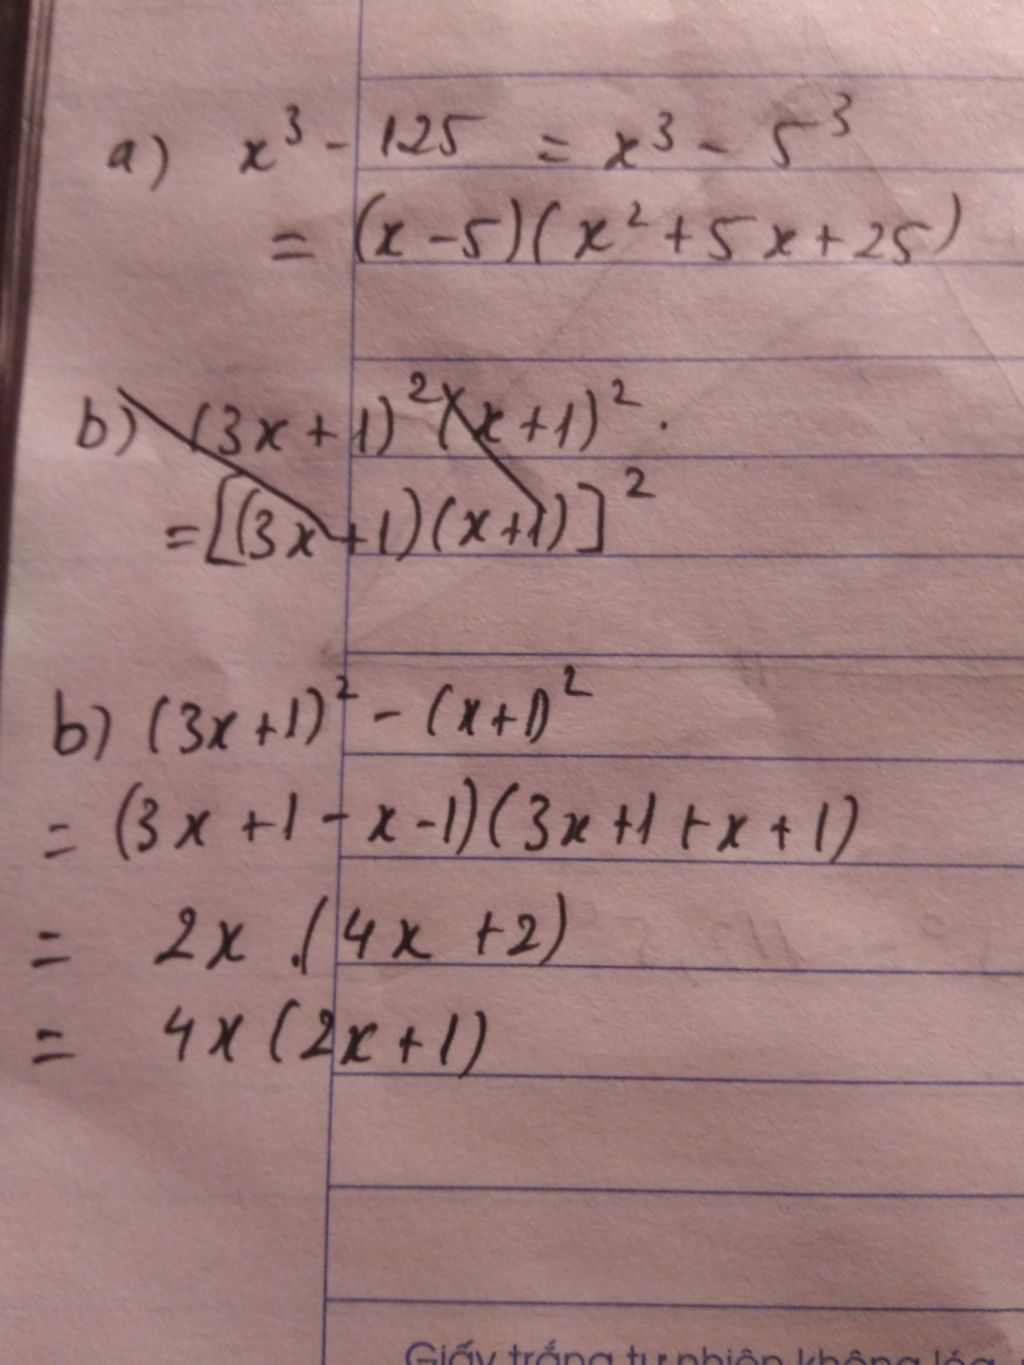 a) x³ - 125 = x³ - 5³
= (x - 5)(x² + 5x + 25)
b) (3x + 1)² (x + 1)² .
= [(3x + 1)(x + 1)]²
b) (3x + 1)² - (x + 1)²
= (3x + 1 - x - 1)(3x + 1 + x + 1)
= 2x . (4x + 2)
= 4x (2x + 1)
Giấy trắng tự nhiên không